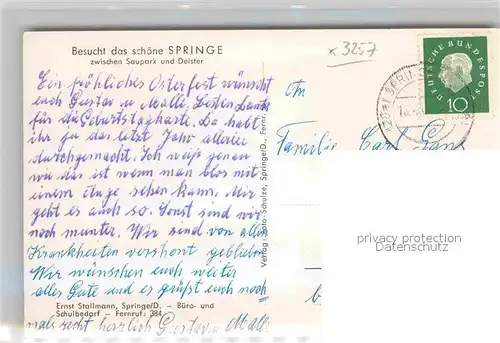 Besucht das schöne SPRINGE
zwischen Saupark und Deister
x 3257
Ein fröhliches Osterfest wünscht
euch Gustav u. Malli. Besten Dank
für die Geburtstagkarte. Da habt
ihr ja das letzt Jahr allerlei
durchgemacht. Ich weiß genau
wie das ist wenn man blos mit
einem Auge sehen kann. Mir
geht es auch so. Sonst sind wir
noch munter. Wir sind von allen
Krankheiten vershont geblieben
Wir wünschen euch weiter
alles Gute und es grüßt euch noch
Ernst Stallmann, Springe/D. – Büro- und
Schulbedarf – Fernruf: 384
mals recht herzlich Gustav u Malli
Verlag: Foto-Schulze, Springe/D., Fernr.
DEUTSCHE BUNDESPOST
10
SPRINGE
An
Familie Carl
privacy protection
Datenschutz